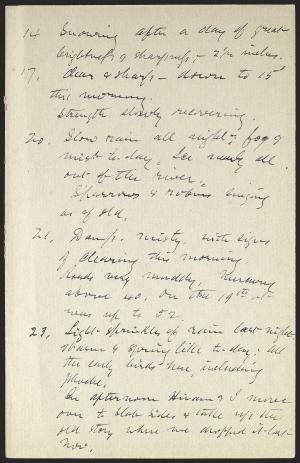 14 Snowing after a day of great
brightness & sharpness, - 2 1/2 inches.
17, Clear & sharp - down to 15°
this morning.
Strength slowly recovering.
20. Slow rain all night; fog &
mist to-day, Ice nearly all
out of the river,
Sparrows & robins singing
as of old.
21, Damp, misty, with signs
of clearing this morning.
Roads very muddy, Mercury
above 40. On the 19th it
was up to 52.
23, Light sprinkles of rain last night
warm & spring like to-day; all
the early birds here, including
phoebe.
In afternoon Hiram & I move
over to Slab sides & take up the
old story where we dropped it last
Nov.